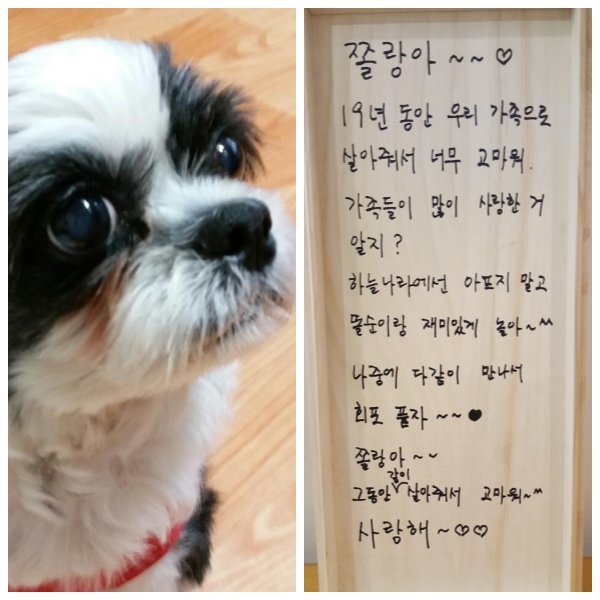 쫄랑아 ~~♡
19년 동안 우리 가족으로
살아줘서 너무 고마워.
가족들이 많이 사랑한 거
알지?
하늘나라에선 아프지 말고
똘순이랑 재미있게 놀아~^^
나중에 다같이 만나서
회포 풀자~~♥
쫄랑아~~
그동안 같이 살아줘서 고마워~^^
사랑해~♡♡